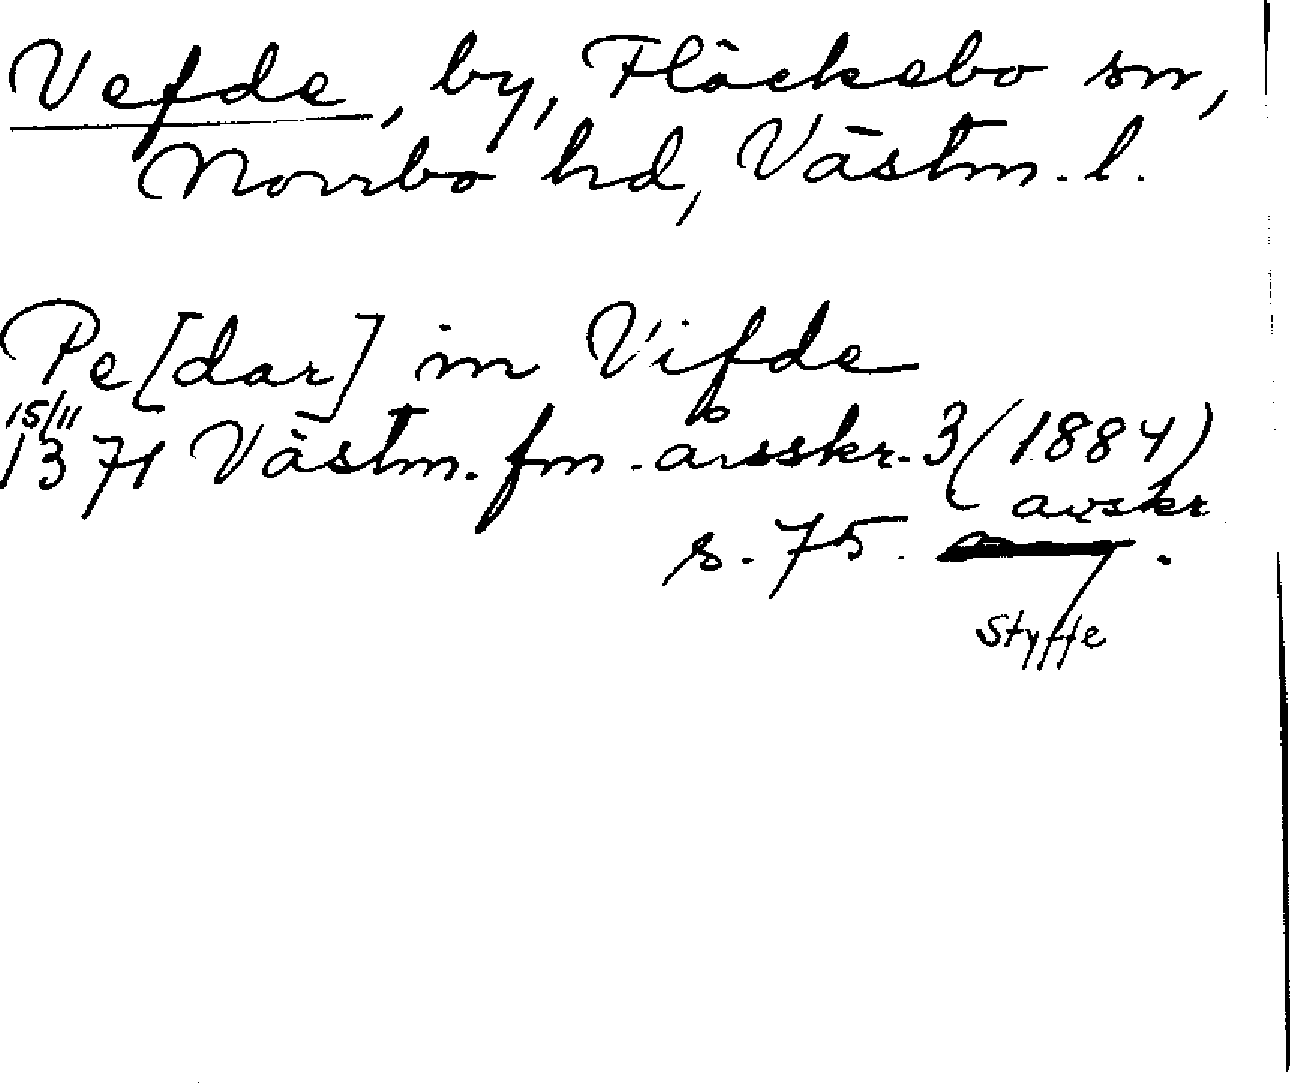 Vefde, by, Fläckebo sn,
Norrbo hd, Västm. l.
Pe[dar] in Vifde
15/11
1371 Västm. fm. årsskr. 3 (1884)
avskr
s. 75.
Styffe